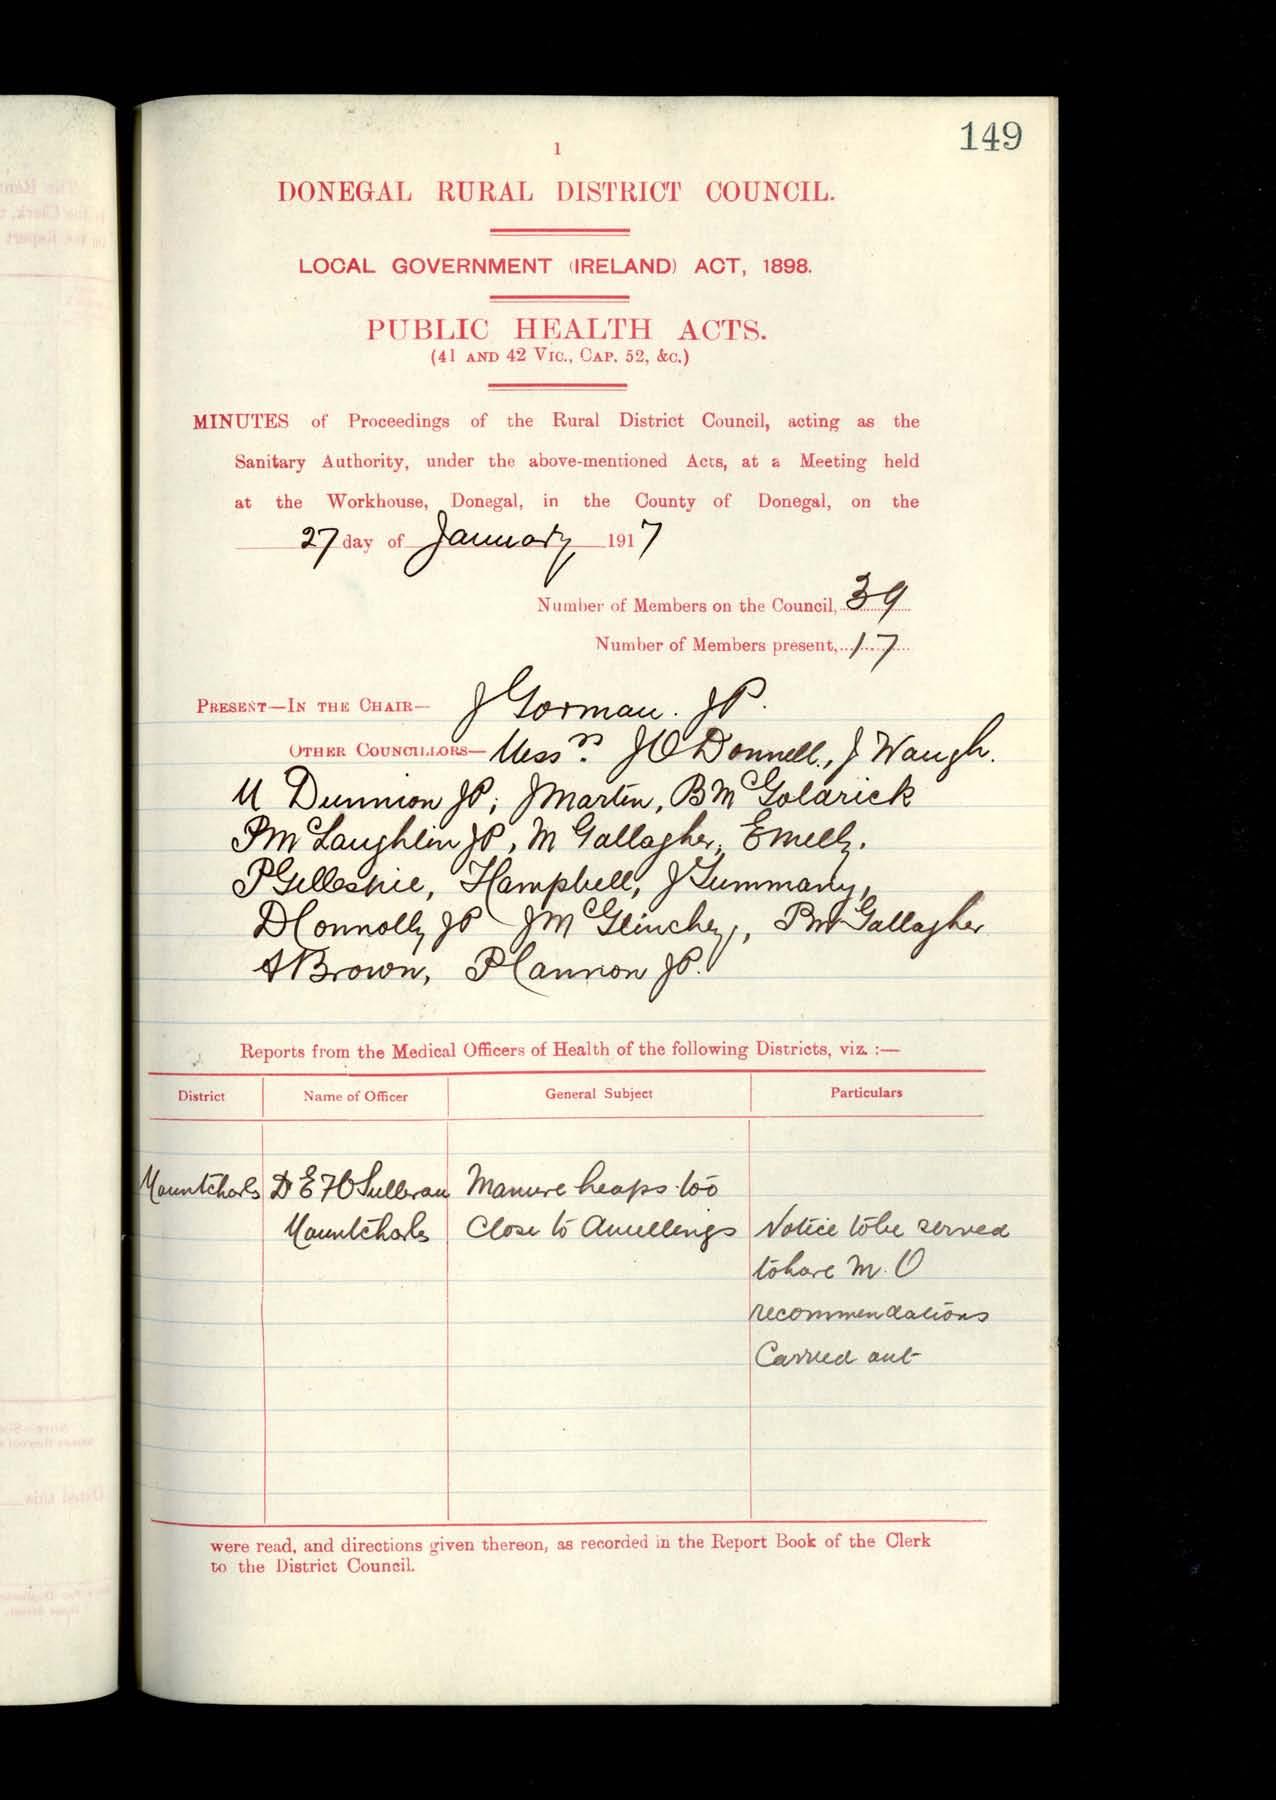 149
1
DONEGAL RURAL DISTRICT COUNCIL.
LOCAL GOVERNMENT (IRELAND) ACT, 1898.
PUBLIC HEALTH ACTS.
(41 AND 42 VIC., CAP. 52, &C.)
MINUTES of Proceedings of the Rural District Council, acting as the
Sanitary Authority, under the above-mentioned Acts, at a Meeting held
at the Workhouse, Donegal, in the County of Donegal, on the
27 day of January 1917
Number of Members on the Council, 39
Number of Members present, 17
PRESENT—IN THE CHAIR— J Gorman. JP.
OTHER COUNCILLORS— Messrs. J O Donnell, J Waugh.
M Dunnion JP, J Martin, B McGolarick
P McLaughlin JP, M Gallagher, E Melly.
P Gillespie, H Campbell, J Timmany,
D Connolly JP J McGlinchey, P Gallagher
A Brown, P Cannon JP.
Reports from the Medical Officers of Health of the following Districts, viz. :—
District Name of Officer General Subject Particulars
Mountcharles Dr E F O Sullivan Manure heaps too
Mountcharles Close to dwellings Notice to be served
to have M. O
recommendations
Carried out
were read, and directions given thereon, as recorded in the Report Book of the Clerk
to the District Council.